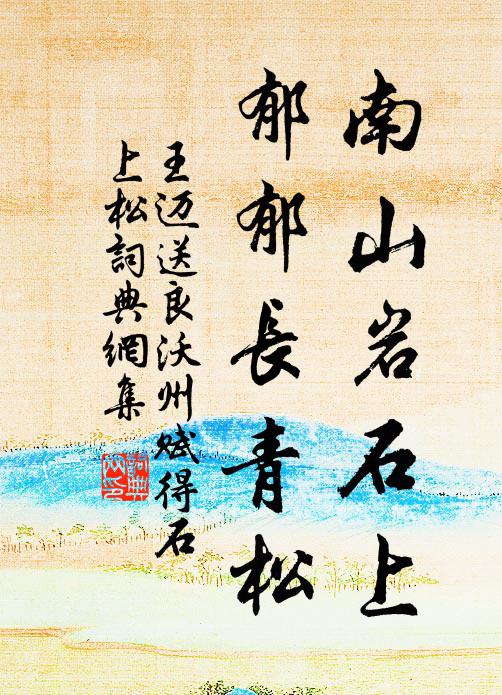 南山岩石上
郁郁長青松
王迈送良沃州赋得石
上松詞典網集